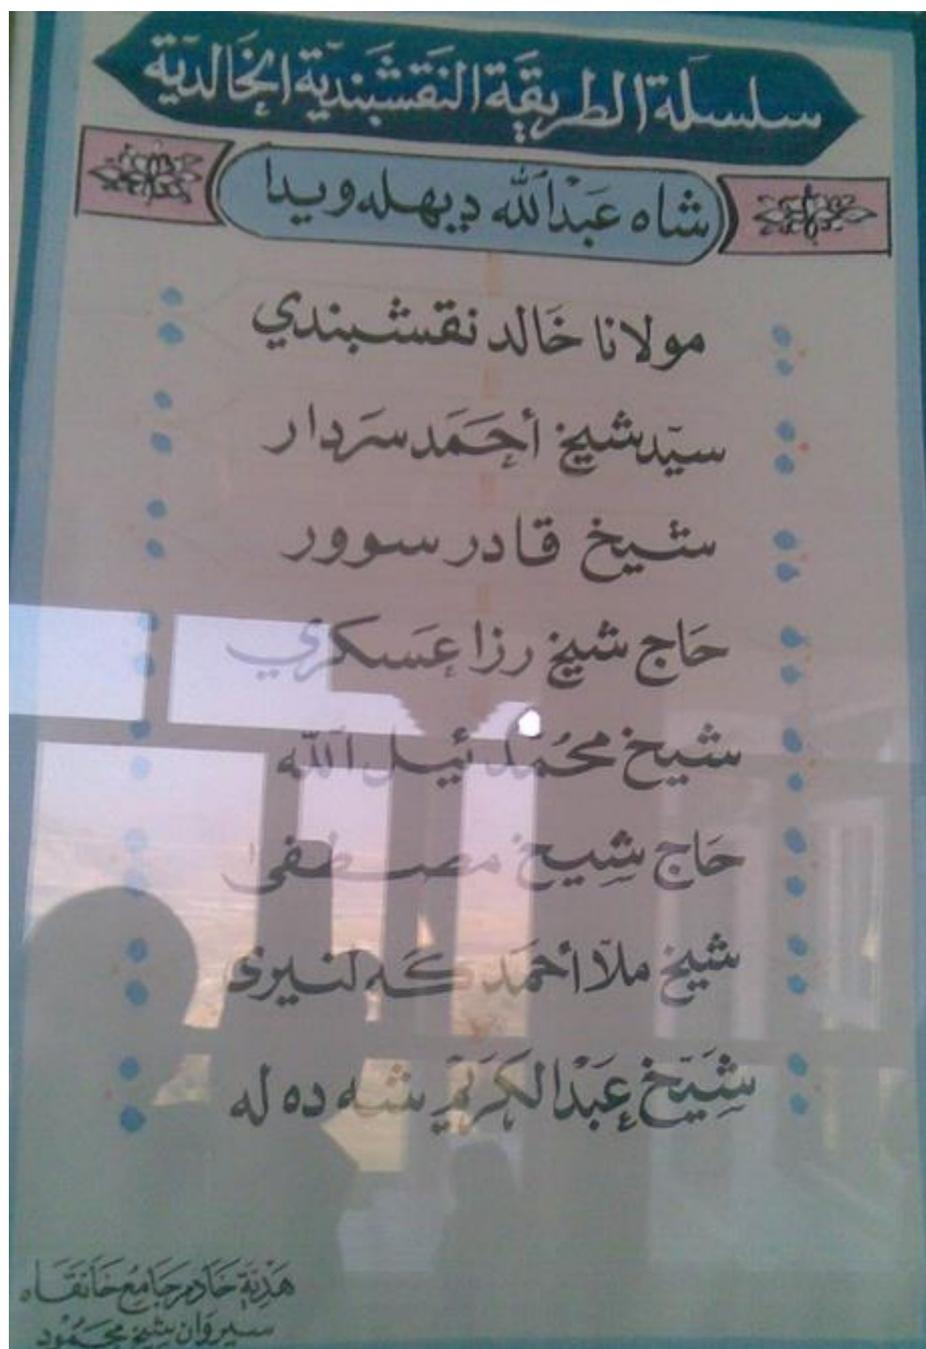 سلسلة الطريقة النقشبندية الخالدية
شاه عَبدالله ديهله ويدا
مولانا خَالد نقشبندي
سيّد شيخ أحمَد سَردار
شيخ قادر سوور
حَاج شيخ رزا عَسكري
شيخ محمُد ئيل الله
حَاج شِيخ مصطفىٰ
شيخ ملا أحمَد كه لنيرى
شِيَخ عَبدالكَريم شه ده له
هَديَة خَادم جَامع خَانقَاه
سيروَان شيخ محمُود